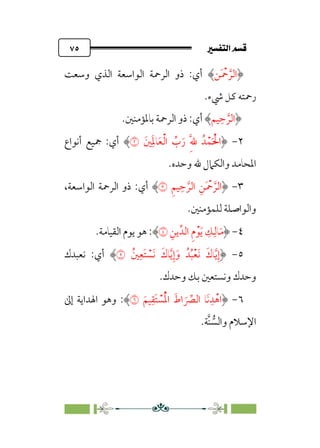 قسم التفسير
٧٥
﴿الرَّحْمَنِ﴾ أي: ذو الرحمة الواسعة الذي وسعت
رحمته كل شيء.
﴿الرَّحِيمِ﴾ أي: ذو الرحمة بالمؤمنين.
٢- ﴿الْحَمْدُ لِلَّهِ رَبِّ الْعَالَمِينَ ۝﴾ أي: جميع أنواع
المحامد والكمال لله وحده.
٣- ﴿الرَّحْمَنِ الرَّحِيمِ ۝﴾ أي: ذو الرحمة الواسعة،
والواصلة للمؤمنين.
٤- ﴿مَالِكِ يَوْمِ الدِّينِ ۝﴾: هو يوم القيامة.
٥- ﴿إِيَّاكَ نَعْبُدُ وَإِيَّاكَ نَسْتَعِينُ ۝﴾ أي: نعبدك
وحدك ونستعين بك وحدك.
٦- ﴿اهْدِنَا الصِّرَاطَ الْمُسْتَقِيمَ ۝﴾: وهو الهداية إلى
الإسلام والسُّنَّة.